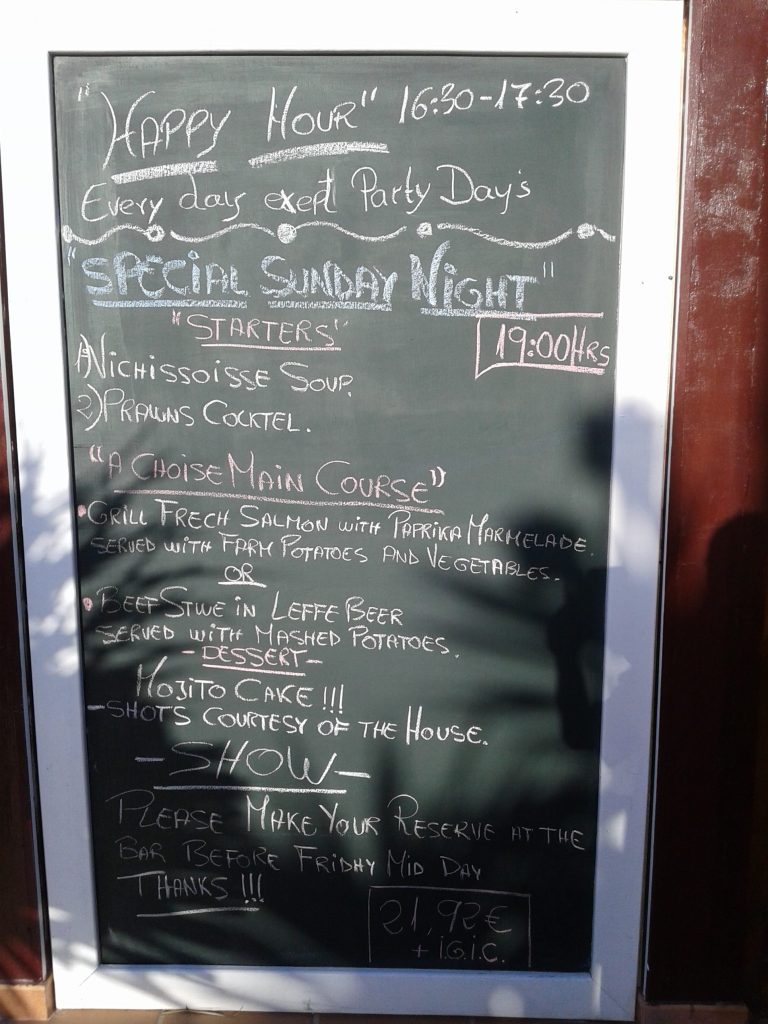 "HAPPY HOUR" 16:30-17:30
Every days exept Party Day's
"SPECIAL SUNDAY NIGHT"
"STARTERS"
19:00HRS
1)VICHISSOISSE SOUP.
2)PRAWNS COCKTEL.
"A CHOISE MAIN COURSE"
•GRILL FRECH SALMON WITH PAPRIKA MARMELADE.
SERVED WITH FARM POTATOES AND VEGETABLES.
OR
•BEEF STWE IN LEFFE BEER
SERVED WITH MASHED POTATOES.
-DESSERT-
MOJITO CAKE!!!
-SHOTS COURTESY OF THE HOUSE.
-SHOW-
PLEASE MAKE YOUR RESERVE AT THE
BAR BEFORE FRIDAY MID DAY
THANKS!!!
21,92€
+ I.G.I.C.